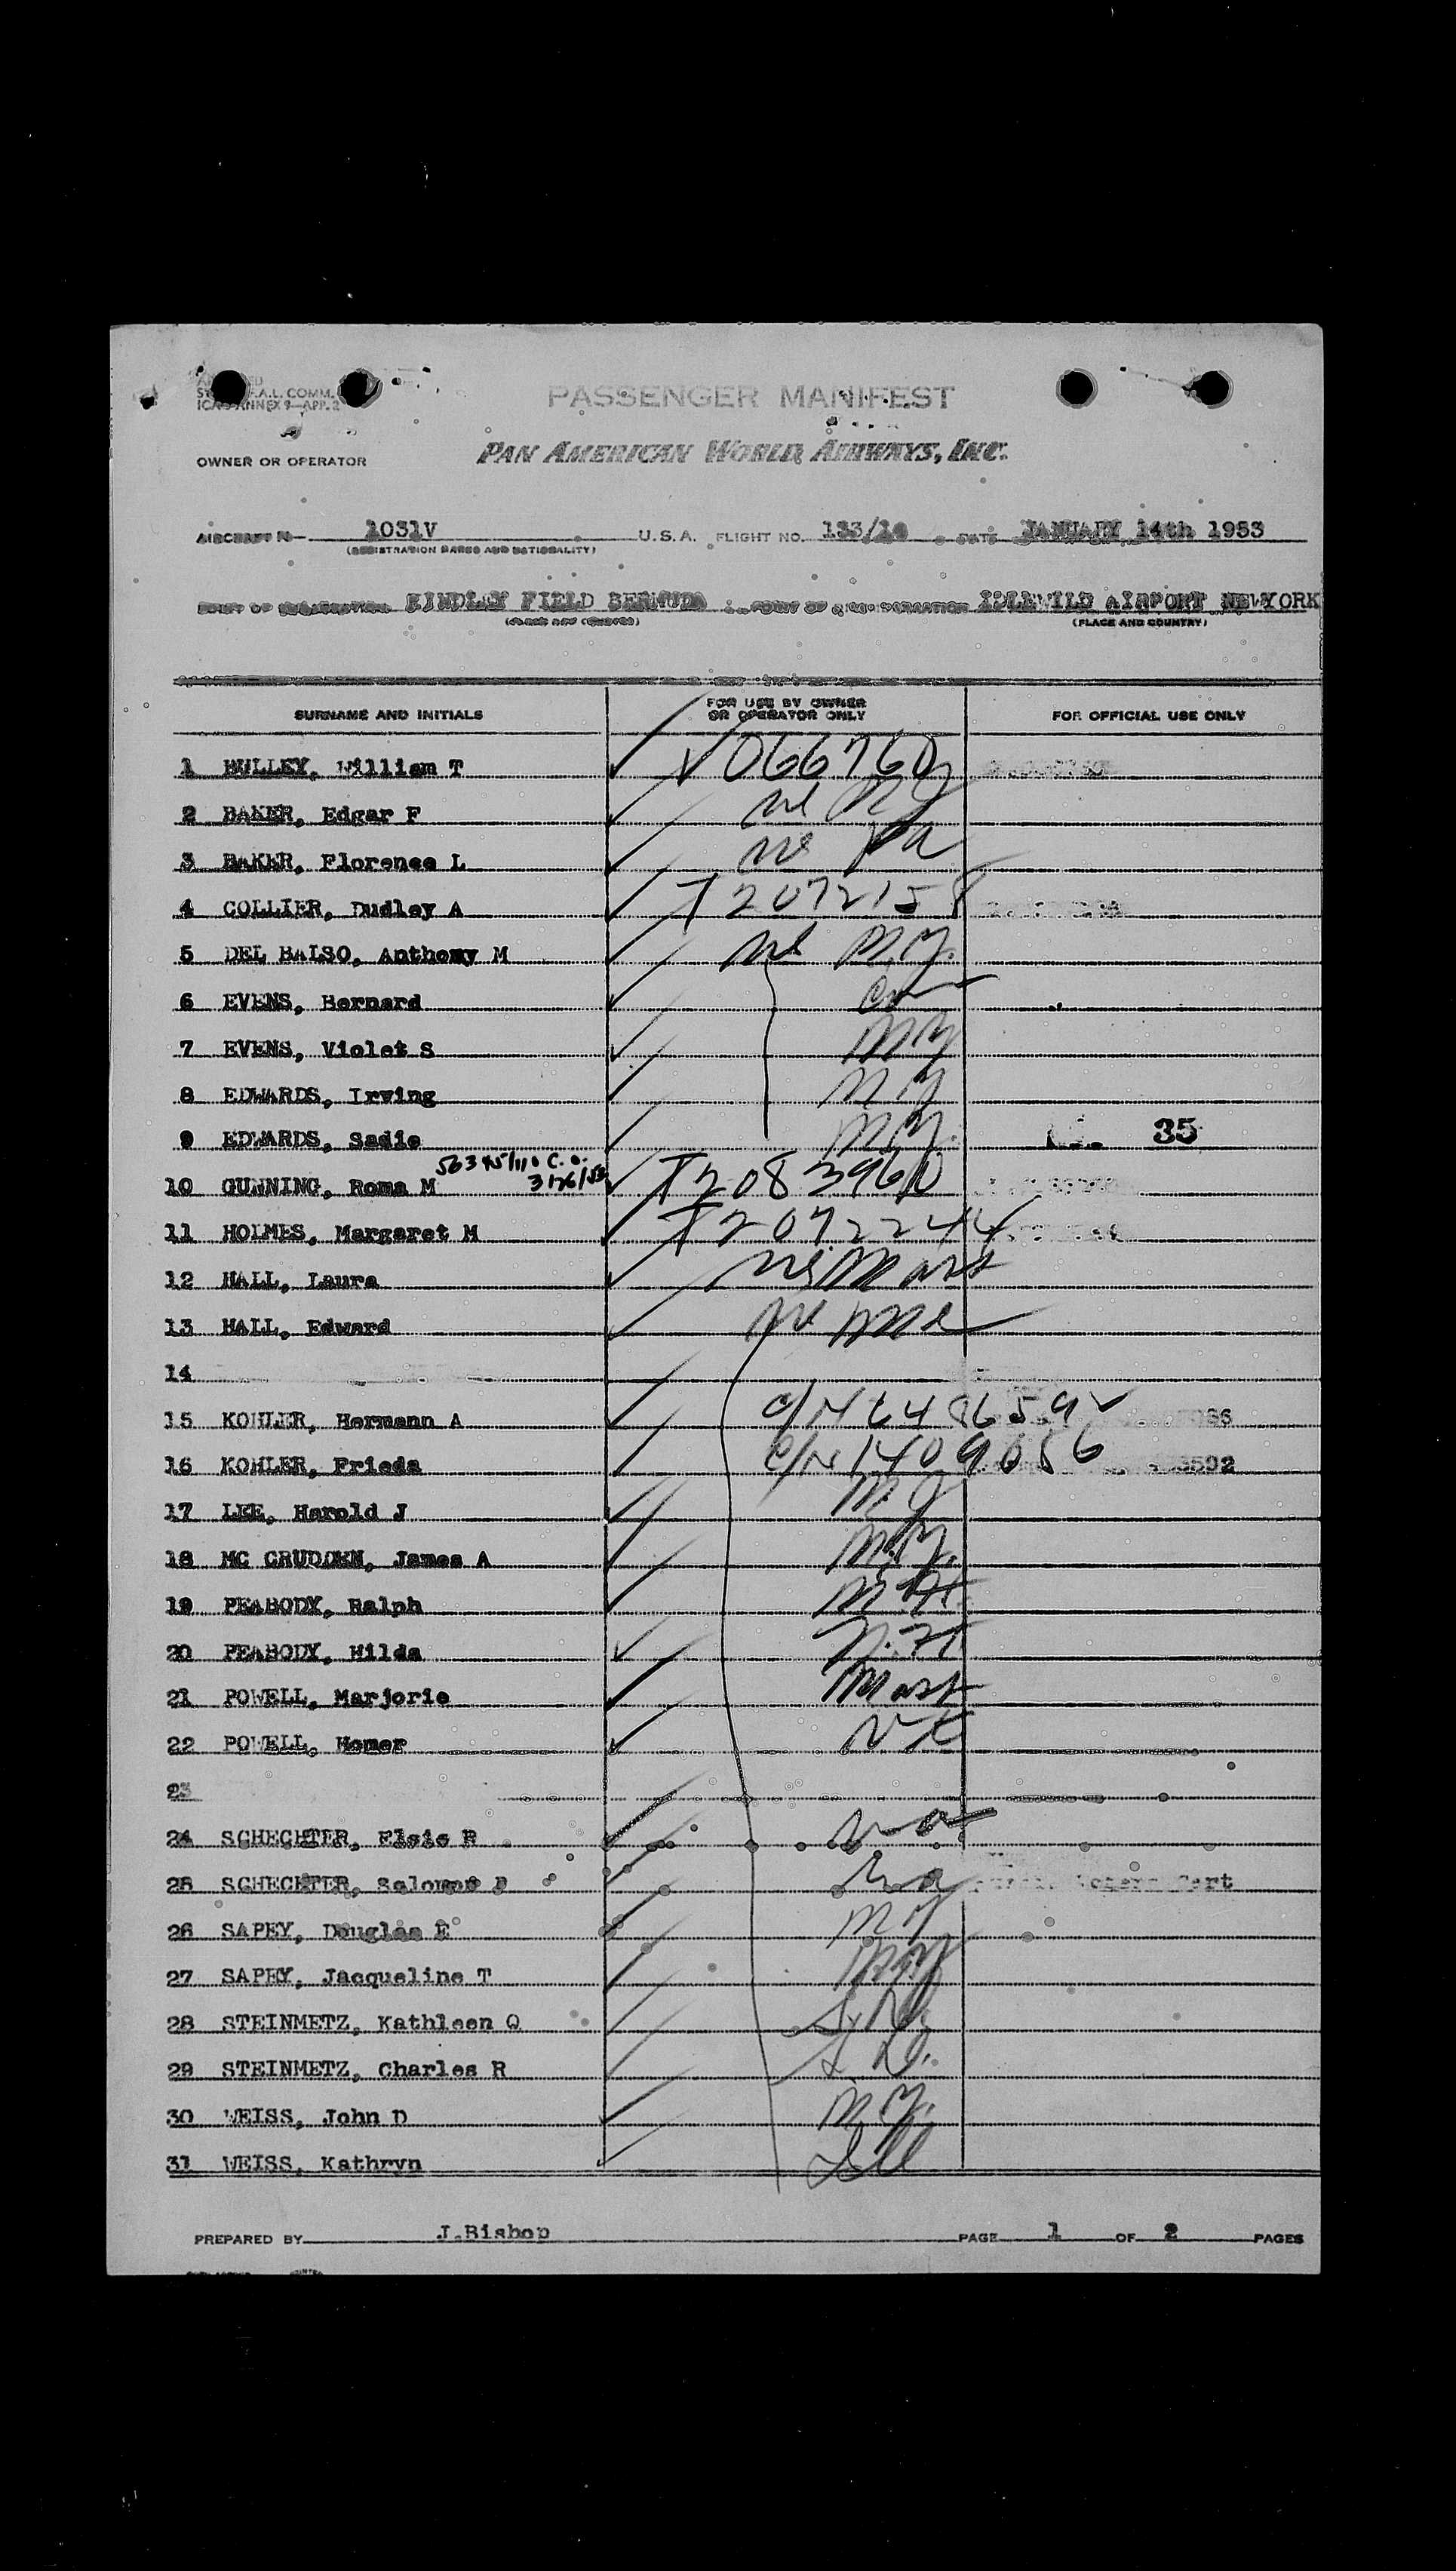 ST F.A.L. COMM.
ICAO ANNEX 9—APP. 2
PASSENGER MANIFEST
OWNER OR OPERATOR PAN AMERICAN WORLD AIRWAYS, INC.
AIRCRAFT N— 1031V U.S.A. FLIGHT NO. 133/14 DATE JANUARY 14th 1953
(REGISTRATION MARKS AND NATIONALITY)
POINT OF EMBARKATION KINDLEY FIELD BERMUDA POINT OF DISEMBARKATION IDLEWILD AIRPORT NEWYORK
(PLACE AND COUNTRY) (PLACE AND COUNTRY)
SURNAME AND INITIALS FOR USE BY OWNER OR OPERATOR ONLY FOR OFFICIAL USE ONLY
1 BULLEY, William T V 066760
2 BAKER, Edgar F NY
3 BAKER, Florence L Pa
4 COLLIER, Dudley A T 2072158
5 DEL BALSO, Anthony M N.Y.
6 EVENS, Bernard
7 EVENS, Violet S NY
8 EDWARDS, Irving N.Y
9 EDWARDS, Sadie N.Y. 35
56345/110 C.O.
3/26/53
10 GUNNING, Roma M T2083960
11 HOLMES, Margaret M T2072244
12 HALL, Laura Mass
13 HALL, Edward
14
15 KOHLER, Hermann A C/N 6486592
16 KOHLER, Frieda C/N 1409656 3502
17 LEE, Harold J N.J
18 MC CRUDDEN, James A N.Y.
19 PEABODY, Ralph N.H.
20 PEABODY, Hilda N.H
21 POWELL, Marjorie Mass
22 POWELL, Homer Vt
23
24 SCHECHTER, Elsie R Va
25 SCHECHTER, Solomon Cert
26 SAPEY, Douglas E NY
27 SAPEY, Jacqueline T NY
28 STEINMETZ, Kathleen Q
29 STEINMETZ, Charles R
30 WEISS, John D N.Y.
31 WEISS, Kathryn Ill
PREPARED BY J.Bishop PAGE 1 OF 2 PAGES